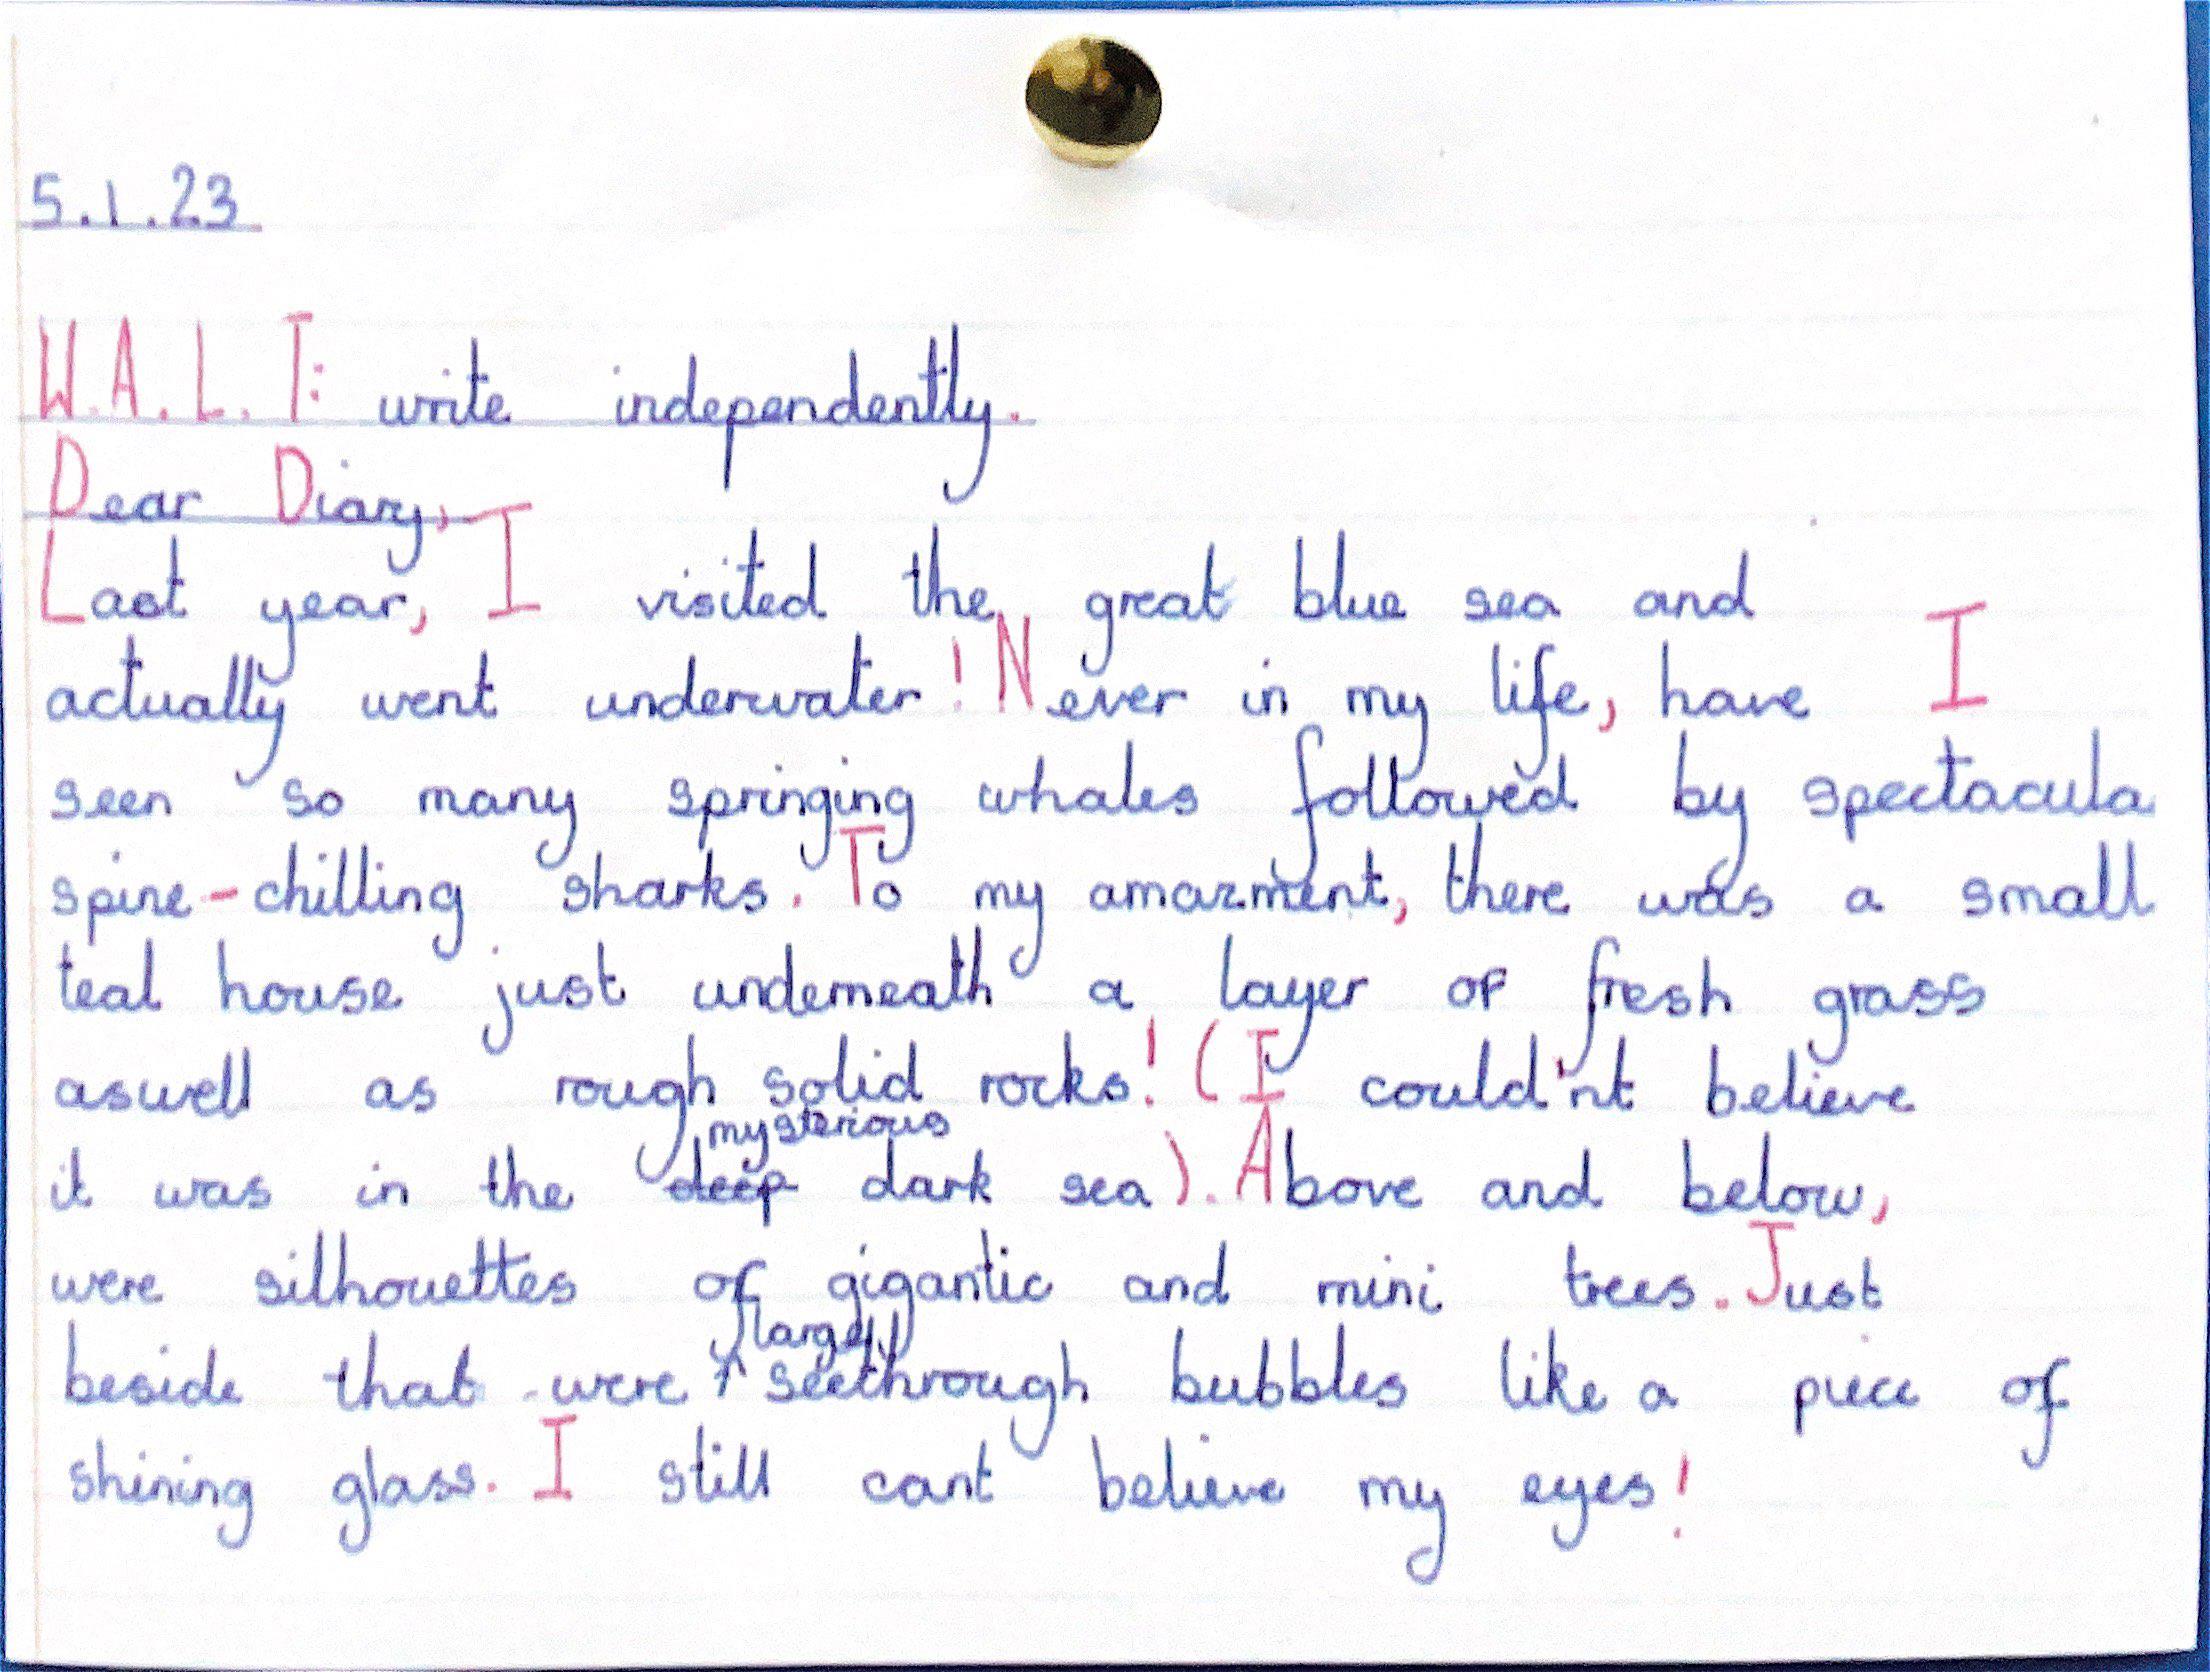 5.1.23
W.A.L.T: write independently.
Dear Diary,
Last year, I visited the great blue sea and
actually went underwater! Never in my life, have I
seen so many springing whales followed by spectacula
spine-chilling sharks. To my amazment, there was a small
teal house just underneath a layer of fresh grass
aswell as rough solid rocks! (I could'nt believe
mysterious
it was in the deep dark sea). Above and below,
were silhouettes of gigantic and mini trees. Just
large
beside that were seethrough bubbles like a piece of
shining glass. I still cant believe my eyes!